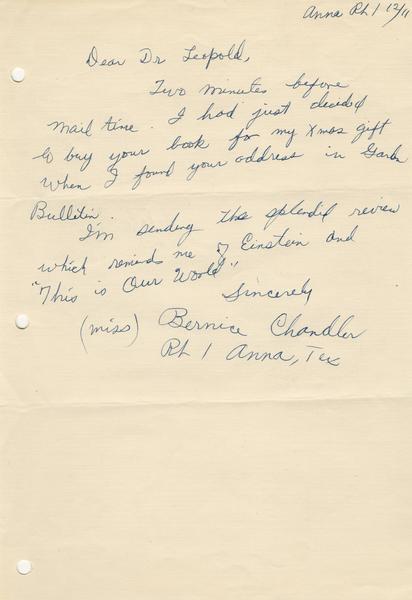 Anna Rt 1 12/11
Dear Dr Leopold,
Two minutes before
mail time. I had just decided
to buy your book for my Xmas gift
when I found your address in Garden
Bulletin.
I'm sending the splendid review
which reminds me of Einstein and
"This is Our World"
Sincerely
(miss) Bernice Chandler
Rt 1 Anna, Tex